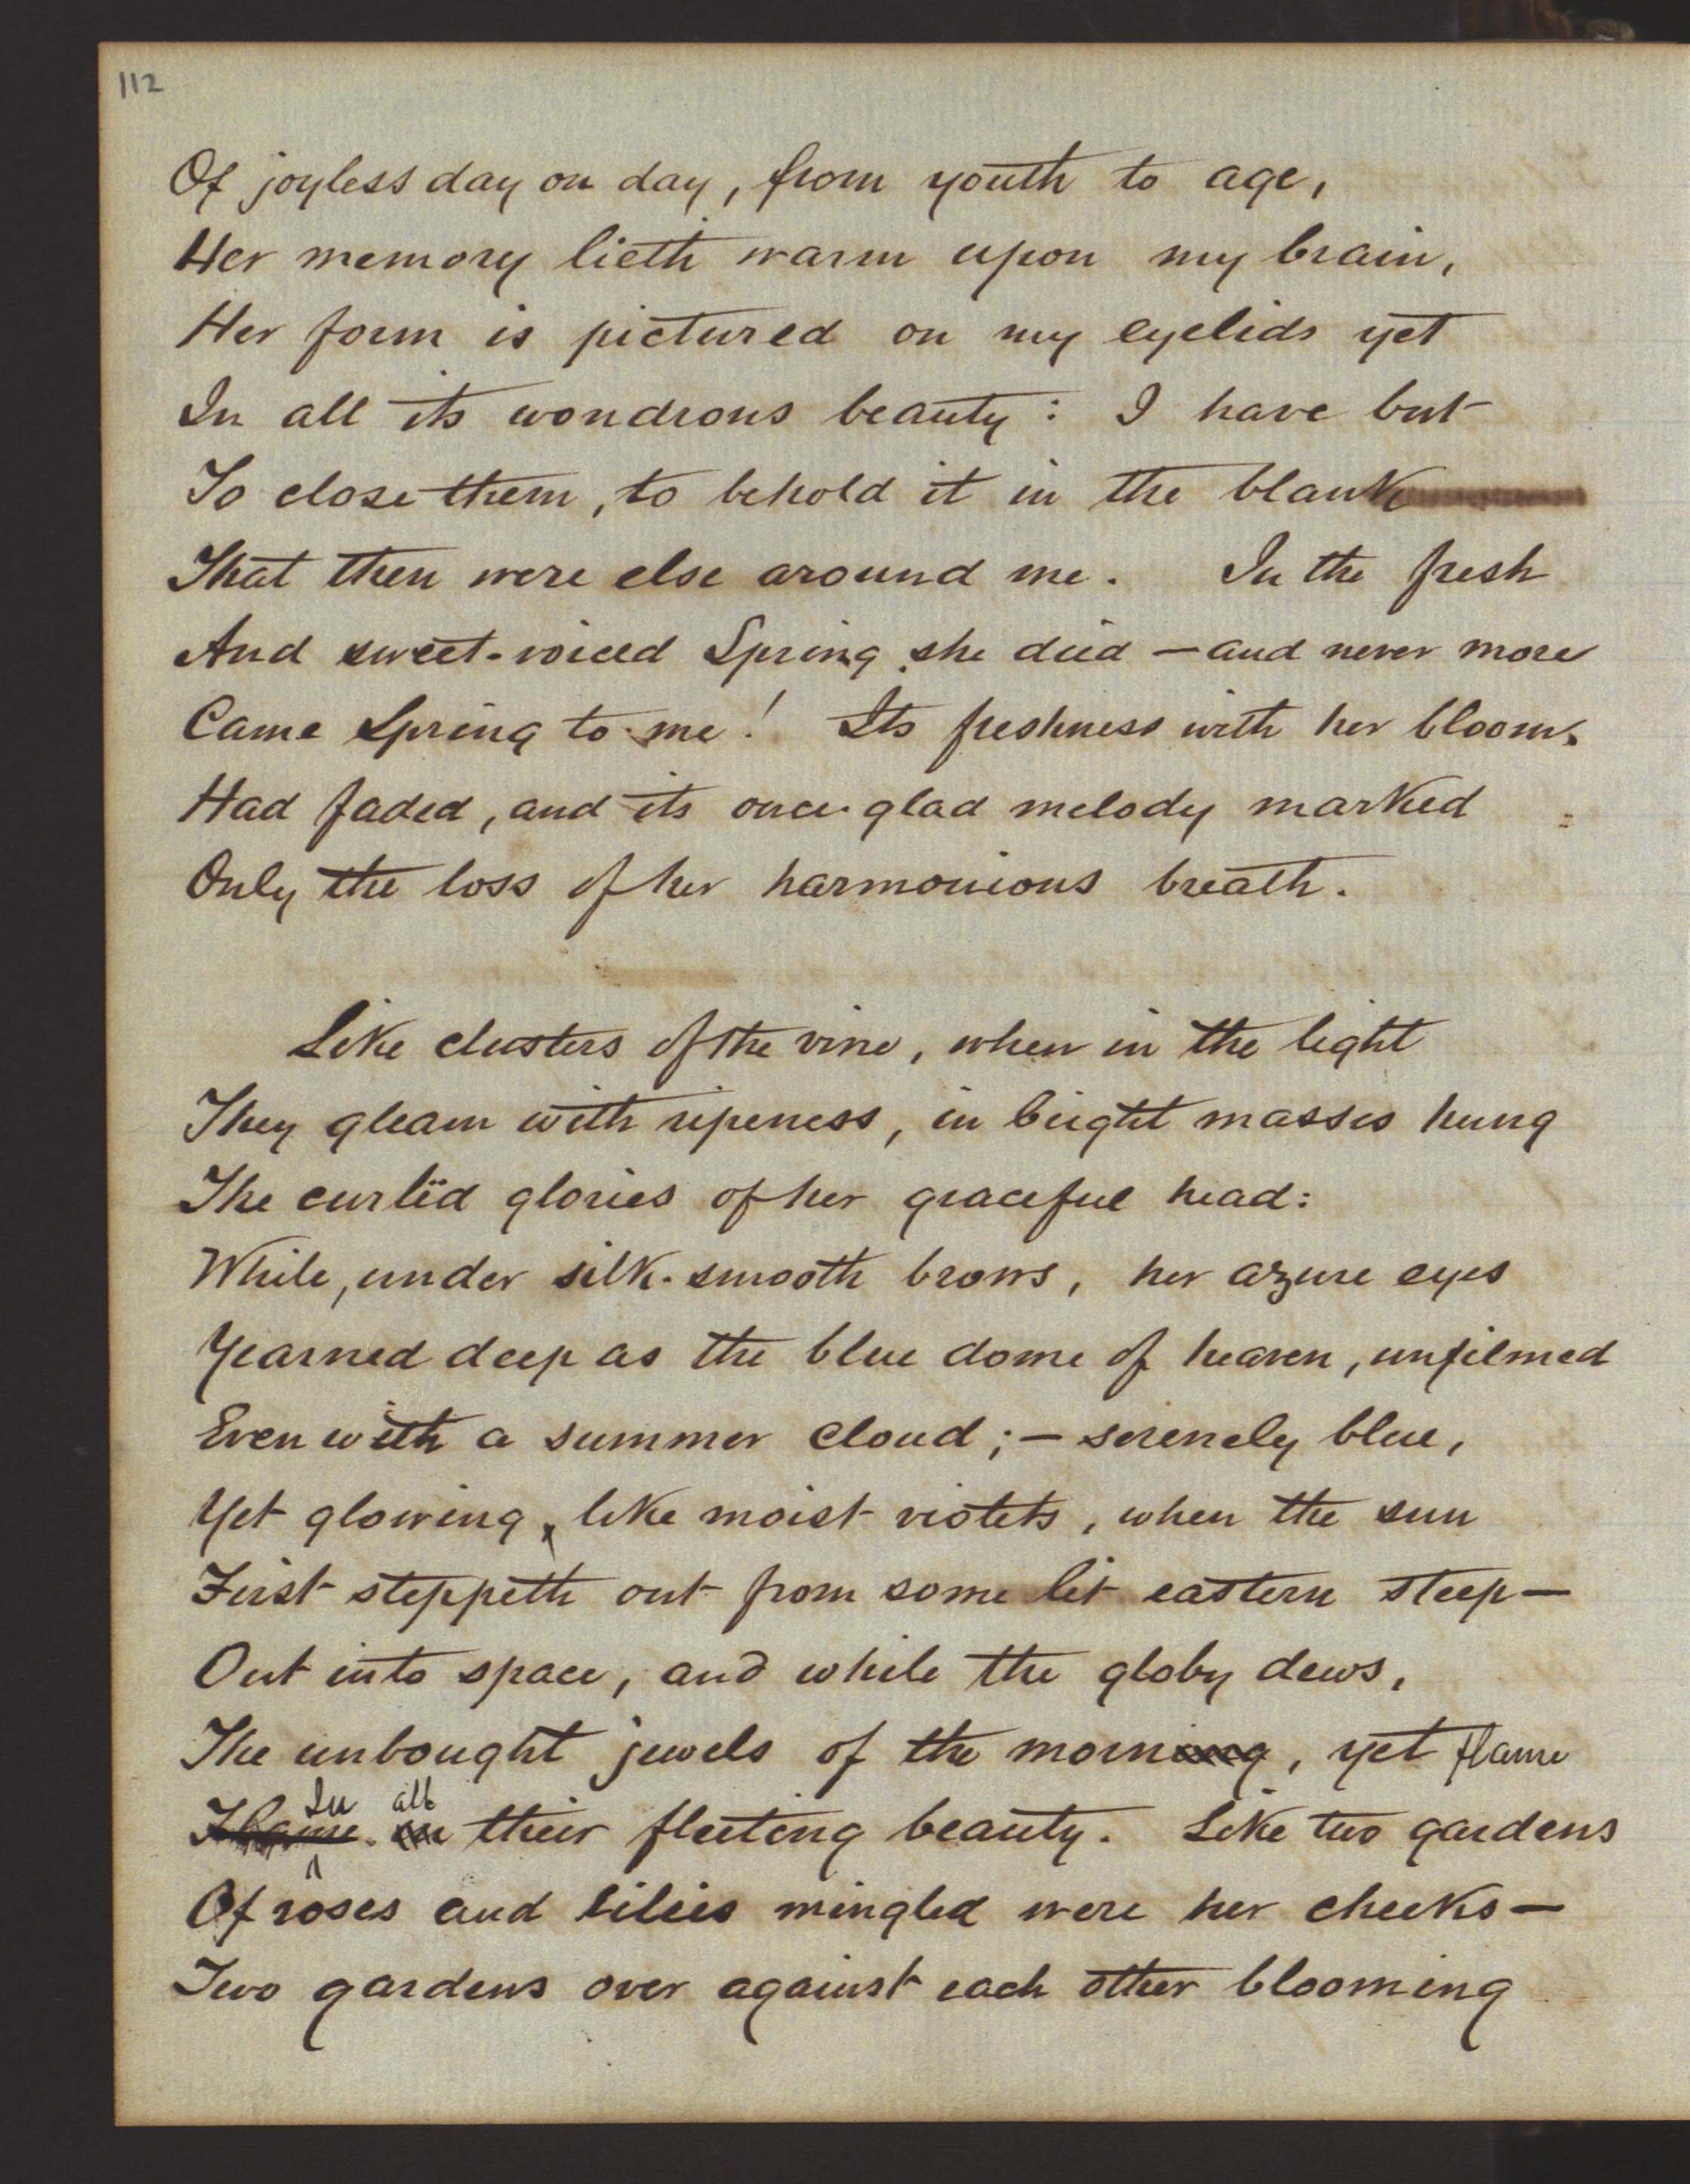 112
Of joyless day on day, from youth to age,
Her memory lieth warm upon my brain,
Her form is pictured on my eyelids yet
In all its wondrous beauty: I have but
To close them, to behold it in the blank
That then were else around me. In the fresh
And sweet-voiced Spring she died — and never more
Came Spring to me! Its freshness with her bloom
Had faded, and its once glad melody marked
Only the loss of her harmonious breath.
Like clusters of the vine, when in the light
They gleam with ripeness, in bright masses hung
The curlëd glories of her graceful head:
While, under silk-smooth brows, her azure eyes
Yearned deep as the blue dome of heaven, unfilmed
Even with a summer cloud; — serenely blue,
Yet glowing, like moist violets, when the sun
First steppeth out from some lit eastern steep—
Out into space, and while the globy dews,
The unbought jewels of the morning, yet flame
In all
Flame in their fleeting beauty. Like two gardens
Of roses and lilies mingled were her cheeks—
Two gardens over against each other blooming